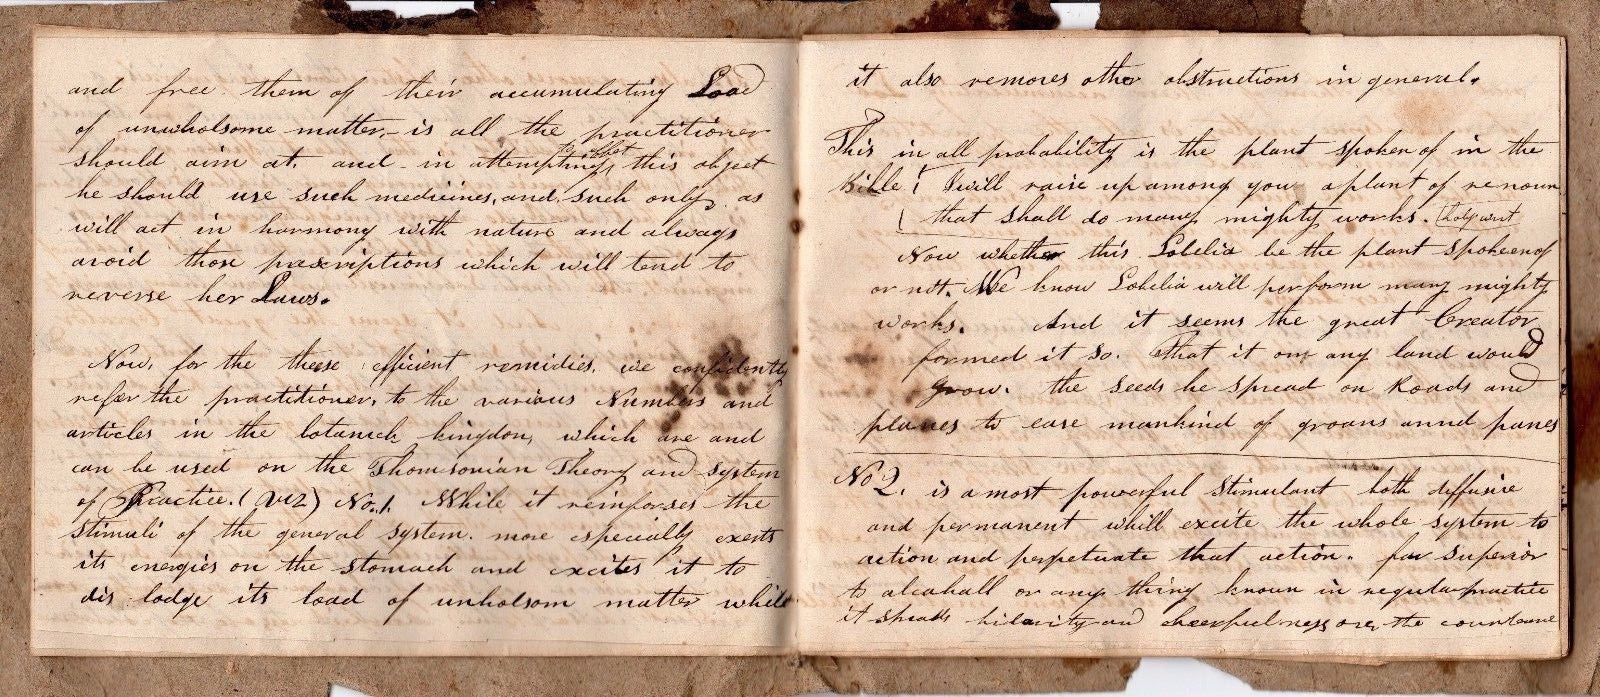 and free them of their accumulating Load
of unwholsome matter, - is all the practitioner
should aim at. and - in attempting this object
he should use such medicines, and, such only, as
will act in harmony with nature and always
avoid those prescriptions which will tend to
reverse her Laws.
Now, for the these efficient remidies, we confidently
refer the practitioner, to the various Numbers and
articles in the botanick kingdon, which are and
can be used on the Thomsonian Theory and system
of Practice. (viz) No. 1. While it reinforses the
stimuli of the general system. more especially exerts
its energies on the stomach and excites it to
dis lodge its load of unholsom matter while
it also removes other obstructions in general.
This in all probability is the plant spoken of in the
Bible! I will raise up among you a plant of renoun
that shall do many mighty works. holy writ
Now whether this Lobelia be the plant spokeen of
or not. We know Lobelia will perform many mighty
works. And it seems the great Creator
formed it so. That it on any land would
grow. the seeds he spread on Roads and
planes to ease mankind of groans annd panes
No 2. is a most powerful stimulant both diffusive
and permanent whill excite the whole system to
action and perpetuate that action. far superior
to alcahall or any thing known in regular practice
it spreads hilarity and cheerfulness over the counteane